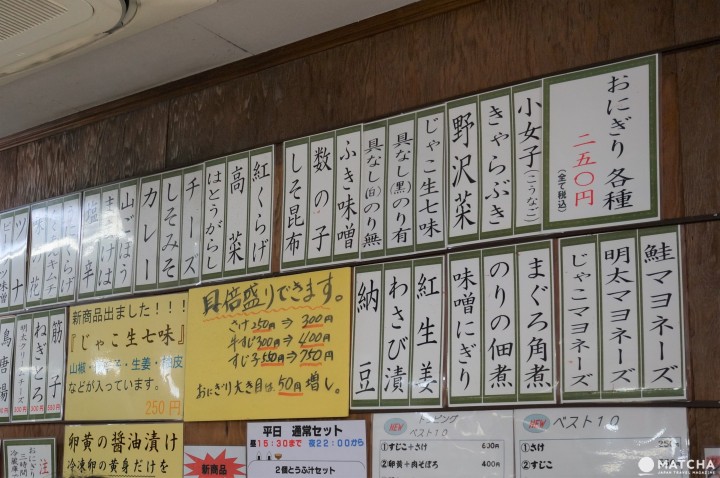 おにぎり 各種
二五〇円
(全て税込)
小女子(こうなご)
きゃらぶき
野沢菜
じゃこ生七味
具なし(黒)のり有
具なし(白)のり無
ふき味噌
数の子
しそ昆布
紅くらげ
高菜
はとうがらし
チーズ
しそみそ
カレー
山ごぼう
鮭マヨネーズ
明太マヨネーズ
じゃこマヨネーズ
まぐろ角煮
のりの佃煮
味噌にぎり
紅生姜
わさび漬
納豆
具倍盛りできます。
さけ250円⇒300円
牛すじ300円⇒400円
すじ子550円⇒750円
おにぎり大き目は50円増し。
新商品出ました!!!
『じゃこ生七味』
などが入っています。
250円
筋子
ねぎとろ
卵黄の醤油漬け
冷凍卵の黄身だけを
新商品
平日 通常セット
昼15:30まで 夜22:00から
2個とうふ汁セット
NEW
トッピング
ベスト10
①すじこ+さけ 630円
②卵黄+肉そぼろ 400円
NEW
ベスト10
①さけ
②すじこ
MATCHA
JAPAN TRAVEL MAGAZINE